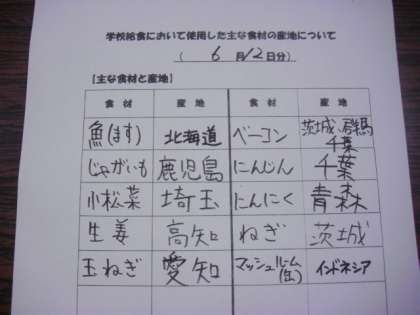 学校給食において使用した主な食材の産地について
( 6月12日分)
【主な食材と産地】
食材 産地 食材 産地
魚(ます) 北海道 ベーコン 茨城、群馬 千葉
じゃがいも 鹿児島 にんじん 千葉
小松菜 埼玉 にんにく 青森
生姜 高知 ねぎ 茨城
玉ねぎ 愛知 マッシュルーム(缶) インドネシア